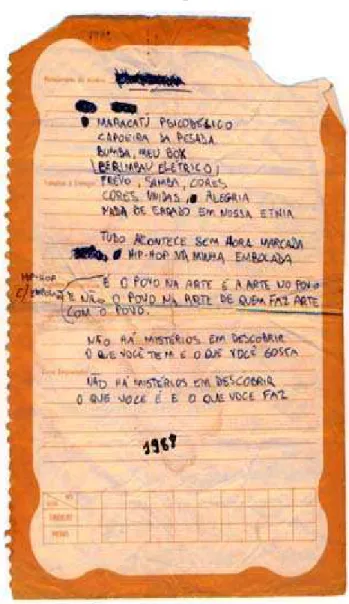 MARACATÚ PSICODÉLICO
CAPOEIRA DA PESADA
BUMBA, MEU BOX
BERIMBAU ELETRICO
FREVO, SAMBA, CORES
CORES UNIDAS, ALEGRIA
NADA DE ERRADO EM NOSSA ETNIA
TUDO ACONTECE SEM HORA MARCADA
HIP-HOP NA MINHA EMBOLADA
HIP-HOP
C/ EMBOLADA
É O POVO NA ARTE É A ARTE NO POVO
E NÃO O POVO NA ARTE DE QUEM FAZ ARTE
COM O POVO.
NÃO HÁ MISTÉRIOS EM DESCOBRIR
O QUE VOCÊ TEM E O QUE VOCÊ GOSTA
NÃO HÁ MISTÉRIOS EM DESCOBRIR
O QUE VOCÊ É E O QUE VOCE FAZ
1988